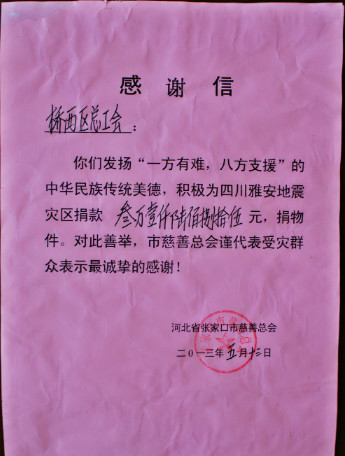 感谢信
桥西区总工会:
你们发扬“一方有难,八方支援”的
中华民族传统美德,积极为四川雅安地震
灾区捐款 叁万壹仟陆佰捌拾伍 元,捐物
件。对此善举,市慈善总会谨代表受灾群
众表示最诚挚的感谢!
河北省张家口市慈善总会
二〇一三年五月十三日